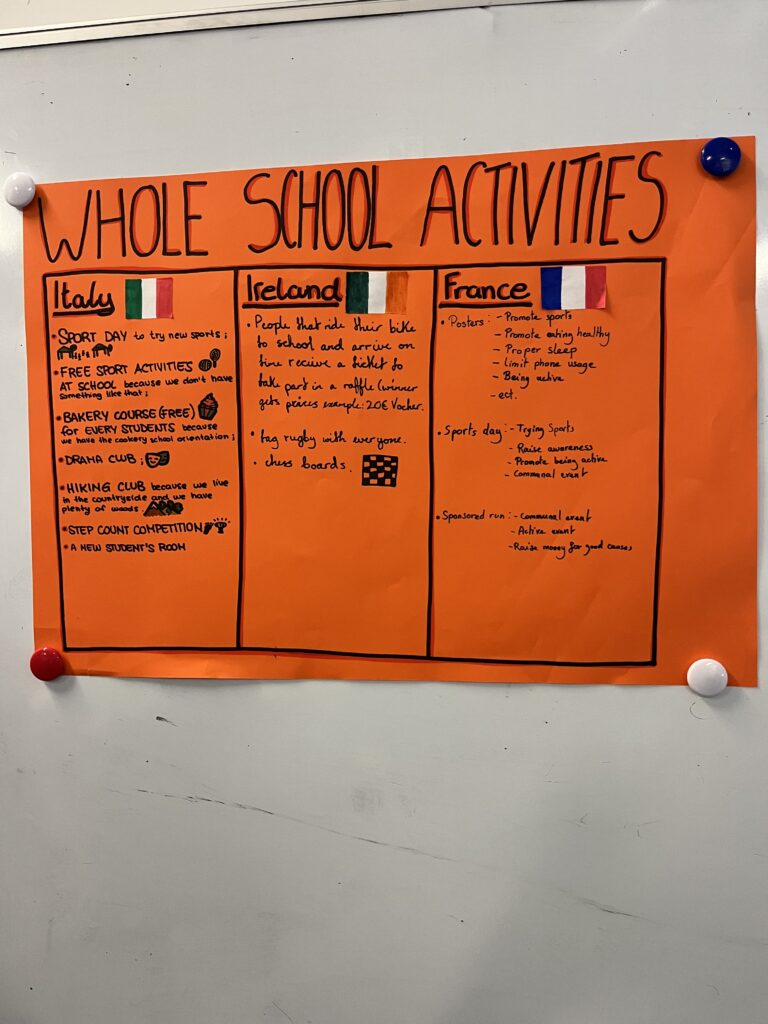 WHOLE SCHOOL ACTIVITIES
Italy
• SPORT DAY to try new sports;
• FREE SPORT ACTIVITIES
AT SCHOOL because we don't have
something like that;
• BAKERY COURSE (FREE)
for EVERY STUDENTS because
we have the cookery school orientation;
• DRAMA CLUB;
• HIKING CLUB because we live
in the countryside and we have
plenty of woods.
• STEP COUNT COMPETITION
• A NEW STUDENT'S ROOM
Ireland
• People that ride their bike
to school and arrive on
time recive a ticket to
take part in a raffle (winner
gets prices example: 20€ Vocher.
• tag rugby with everyone.
• chess boards.
France
• Posters: - Promote sports
- Promote eating healthy
- Proper sleep
- Limit phone usage
- Being active
- ect.
• Sports day: - Trying Sports
- Raise awareness
- Promote being active
- Communal event
• Sponsored run: - Communal event
- Active event
- Raise money for good causes